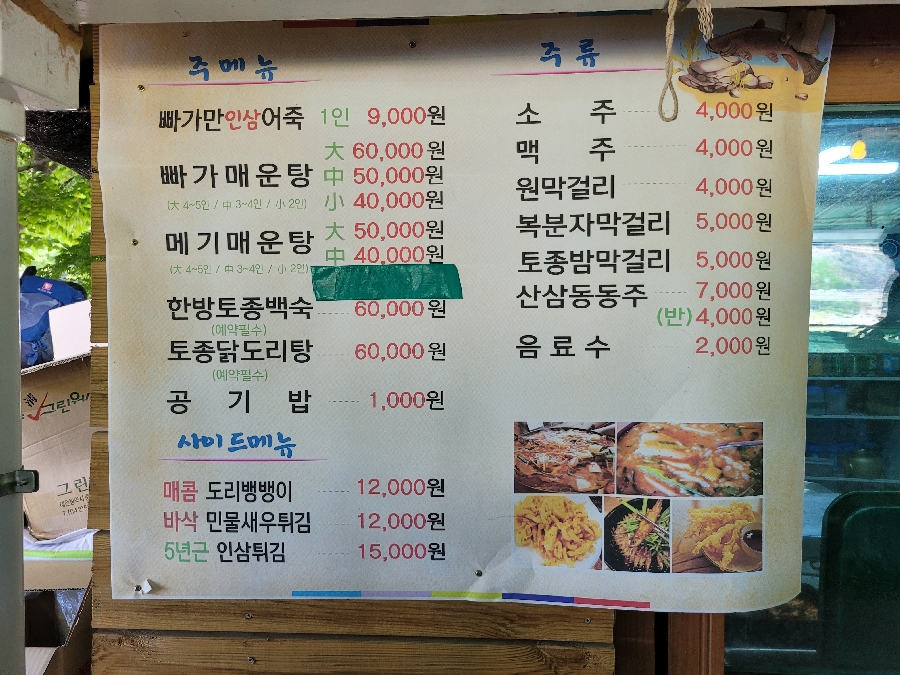 주메뉴
빠가만인삼어죽 1인 9,000원
빠가매운탕 大 60,000원
中 50,000원
小 40,000원
(大 4~5인 / 中 3~4인 / 小 2인)
메기매운탕 大 50,000원
中 40,000원
(大 4~5인 / 中 3~4인 / 小 2인)
한방토종백숙 60,000원
(예약필수)
토종닭도리탕 60,000원
(예약필수)
공기밥 1,000원
사이드메뉴
매콤 도리뱅뱅이 12,000원
바삭 민물새우튀김 12,000원
5년근 인삼튀김 15,000원
주류
소주 4,000원
맥주 4,000원
원막걸리 4,000원
복분자막걸리 5,000원
토종밤막걸리 5,000원
산삼동동주 7,000원
(반) 4,000원
음료수 2,000원